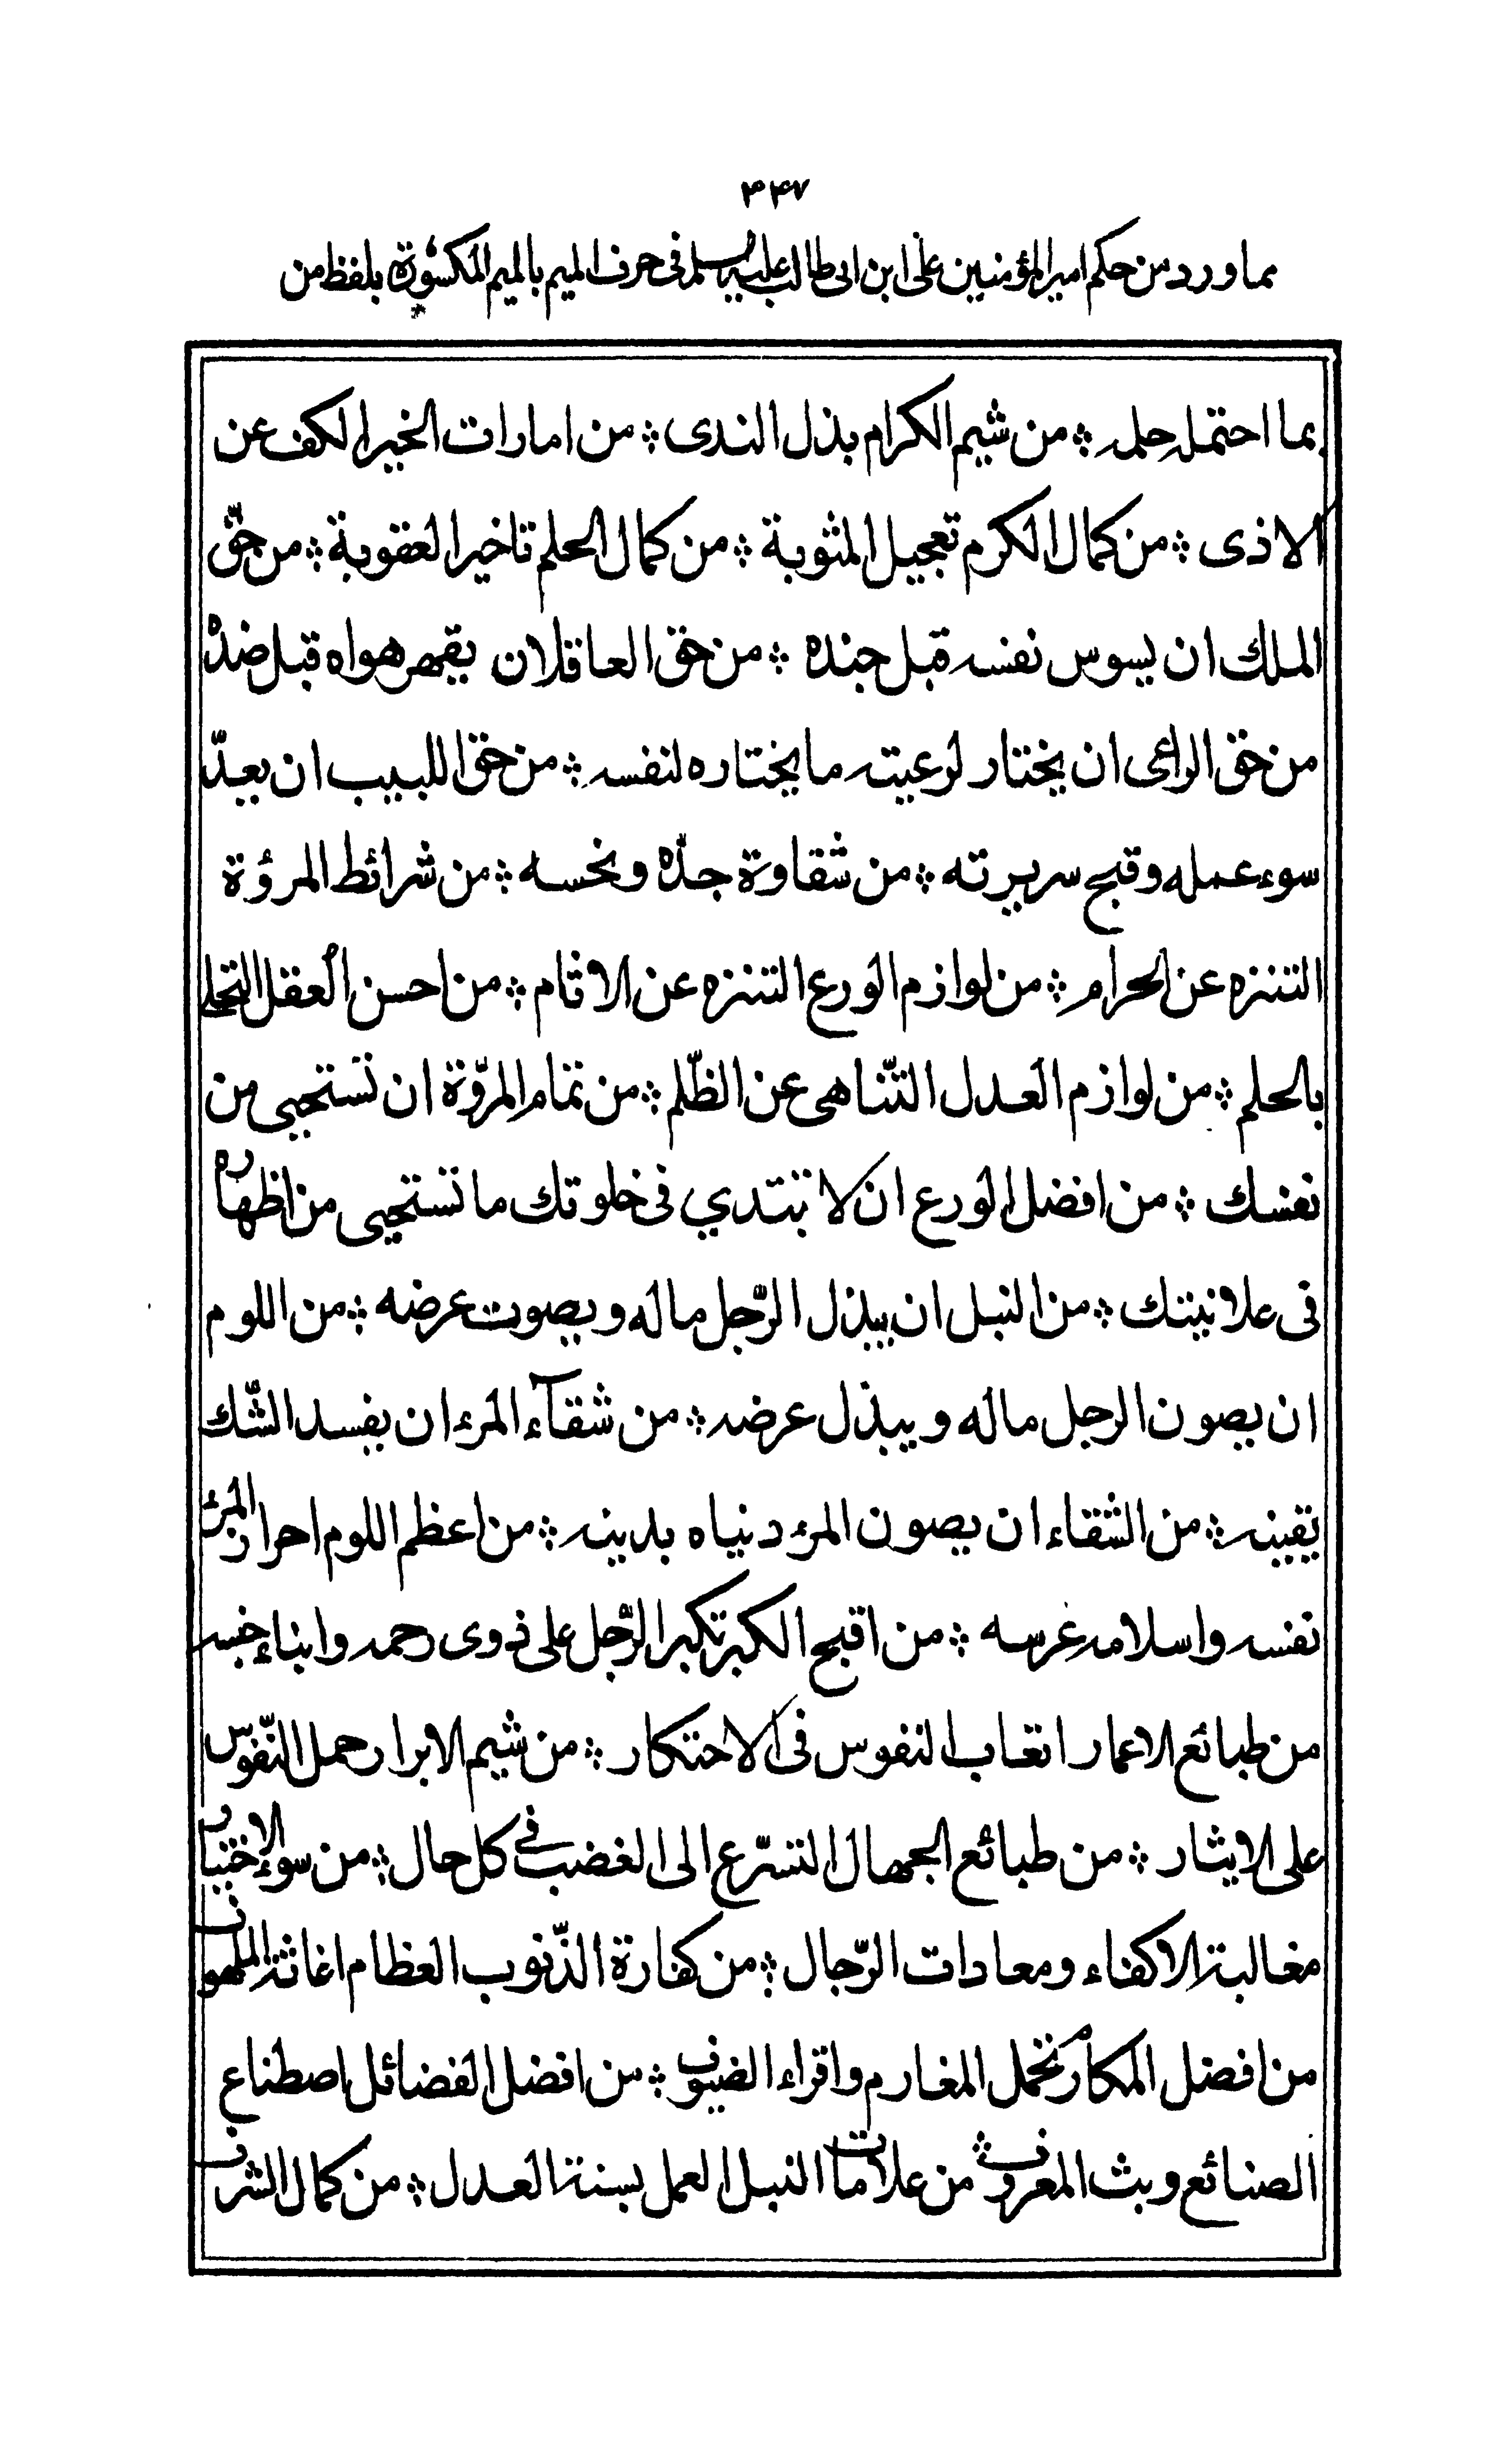 ۳۴۷
مما ورد من حكم امير المؤمنين على ابن ابى طالب عليه السلم فى حرف الميم بالميم المكسورة بلفظ من
بما احتمله حلمه ⁘ من شيم الكرام بذل الندى ⁘ من امارات الخير الكف عن
الاذى ⁘ من كمال الكرم تعجيل المثوبة ⁘ من كمال الحلم تاخير العقوبة ⁘ من حقّ
الملك ان يسوس نفسه قبل جنده ⁘ من حق العاقل ان يقهر هواه قبل ضدّه
من حق الراعى ان يختار لرعيته ما يختاره لنفسه ⁘ من حق اللبيب ان يعدّ
سوء عمله وقبح سريرته ⁘ من شقاوة جدّه ونحسه ⁘ من شرائط المرؤة
التنزه عن الحرام ⁘ من لوازم الورع التنزه عن الاثام ⁘ من احسن العقل التحلى
بالحلم ⁘ من لوازم العدل التّناهى عن الظّلم ⁘ من تمام المروّة ان تستحيى من
نفسك ⁘ من افضل الورع ان لا تبتدي فى خلوتك ما تستحيى من اظهاره
فى علانيتك ⁘ من النبل ان يبذل الرّجل ماله ويصون عرضه ⁘ من اللوم
ان يصون الرجل ماله ويبذل عرضه ⁘ من شقآء المرء ان يفسد الشّك
يقينه ⁘ من الشقاء ان يصون المرء دنياه بدينه ⁘ من اعظم اللوم احراز المرء
نفسه واسلامه عرسه ⁘ من اقبح الكبر تكبر الرّجل على ذوى رحمه وابناء جنسه
من طبائع الاغمار اتعاب النفوس فى الاحتكار ⁘ من شيم الابرار حمل النّفوس
على الايثار ⁘ من طبائع الجهال التسرّع الى الغضب فى كل حال ⁘ من سوء الاختيار
مغالبة الاكفاء ومعادات الرّجال ⁘ من كفارة الذّنوب العظام اغاثة الملهوف
من افضل المكارم تحمل المغارم واقراء الضيوف ⁘ من افضل الفضائل اصطناع
الصنائع وبث المعروف ⁘ من علامات النبل العمل بسنة العدل ⁘ من كمال الشرف